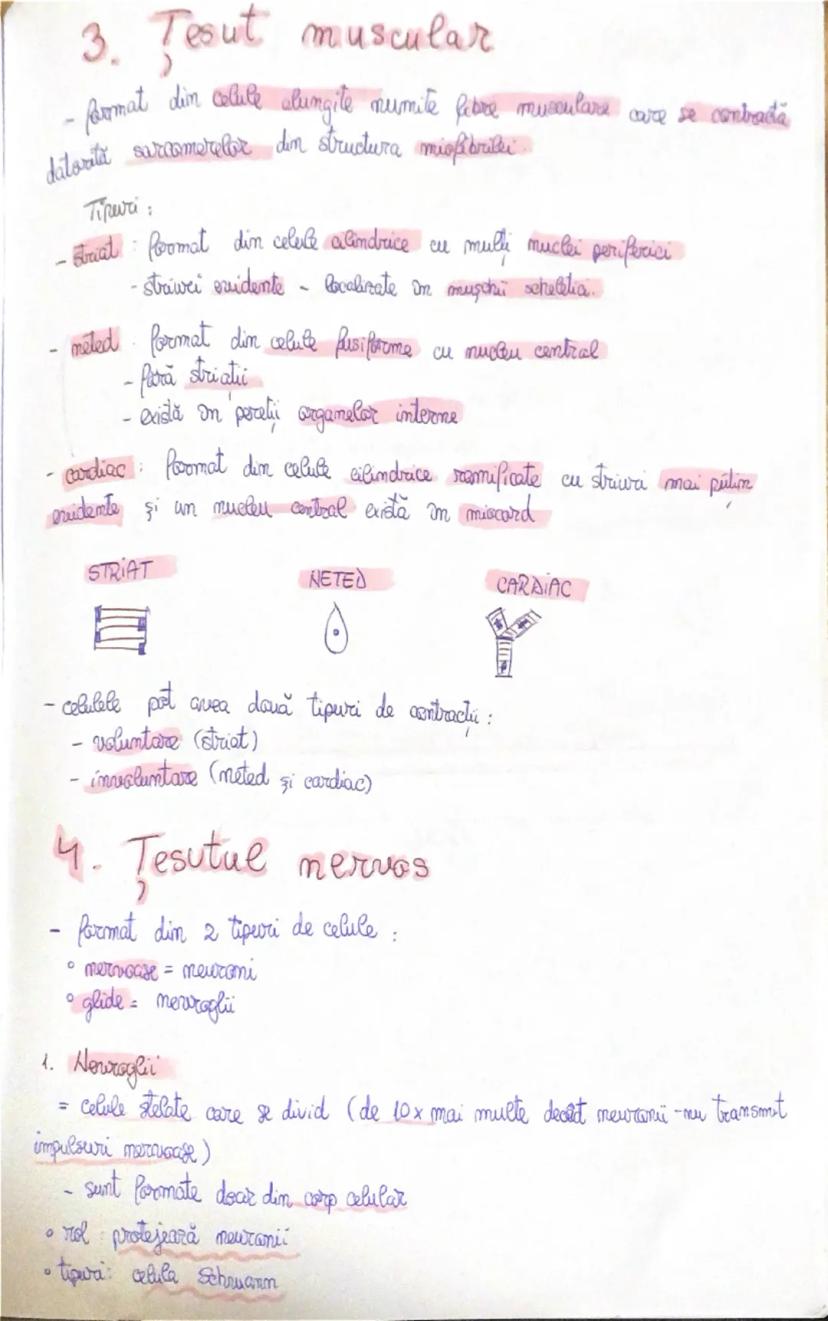 3. Țesut muscular
- format din celule alungite numite fibre musculare care se contractă
datorită sarcomerelor din structura miofibrilei.
Tipuri :
- striat : format din celule cilindrice cu mulți nuclei periferici
- striuri evidente - localizate în mușchii scheletici.
- neted : format din celule fusiforme cu nucleu central
- fără striații
- există în pereții organelor interne
- cardiac : format din celule cilindrice ramificate cu striuri mai puțin
evidente și un nucleu central există în miocard
STRIAT NETED CARDIAC
- celulele pot avea două tipuri de contracții :
- voluntare (striat)
- involuntare (neted și cardiac)
4. Țesutul nervos
- format din 2 tipuri de celule :
° nervoase = neuroni
° glide = nevroglii
1. Nevroglii
= celule stelate care se divid (de 10x mai multe decât neuronii - nu transmit
impulsuri nervoase)
- sunt formate doar din corp celular
° rol : protejează neuronii
° tipuri: celula Schwann